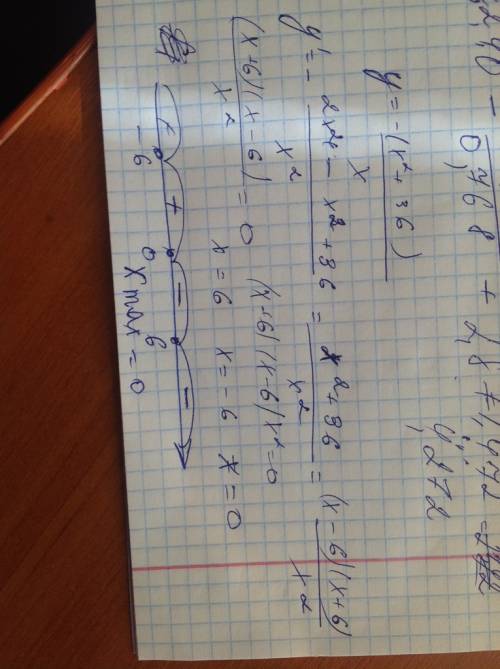 0,468 + 2,87,472 =
4,272
y = -(x² + 36) / x
y' = - (2x² - x² + 36) / x² = (x² + 36) / x² = (x - 6)(x + 6) / x²
(x + 6)(x - 6) / x² = 0 (x + 6)(x - 6) x² = 0
x = 6 x = -6 x = 0
+ + - -
-6 0 6
x max = 0